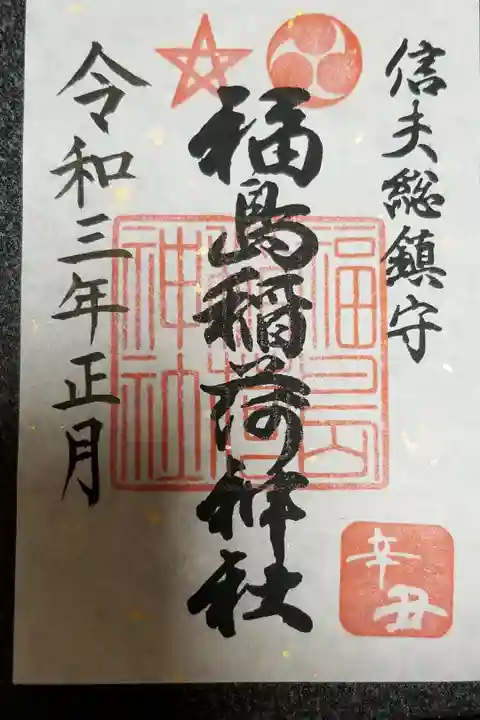 信夫総鎮守
福島稲荷神社
令和三年正月
福島稲荷神社
辛丑